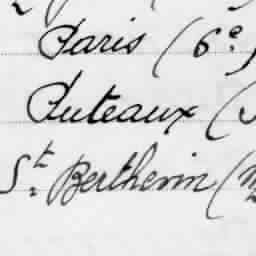 Paris (6e)
Puteaux (S
St. Berthevin (M